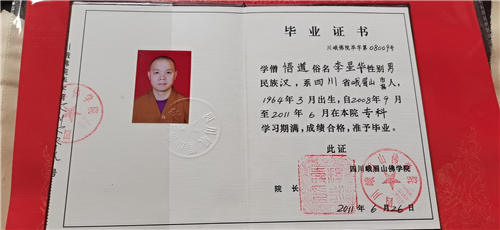 毕业证书
川峨佛院毕字第08009号
学僧悟道俗名李里华性别男
民族汉,系四川省峨眉山市县人,
1964年3月出生,自2008年9月
至2011年6月在本院专科
学习期满,成绩合格,准予毕业。
此证
四川峨眉山佛学院
院长
2011年6月26日